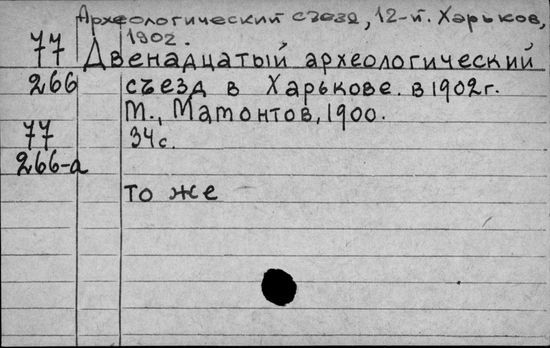 Археологический съезд, 12-й. Харьков,
1902.
77 Двенадцатый археологический
266 съезд в Харькове. в 1902 г.
М., Мамонтов, 1900.
77 34 с.
266-а
то же